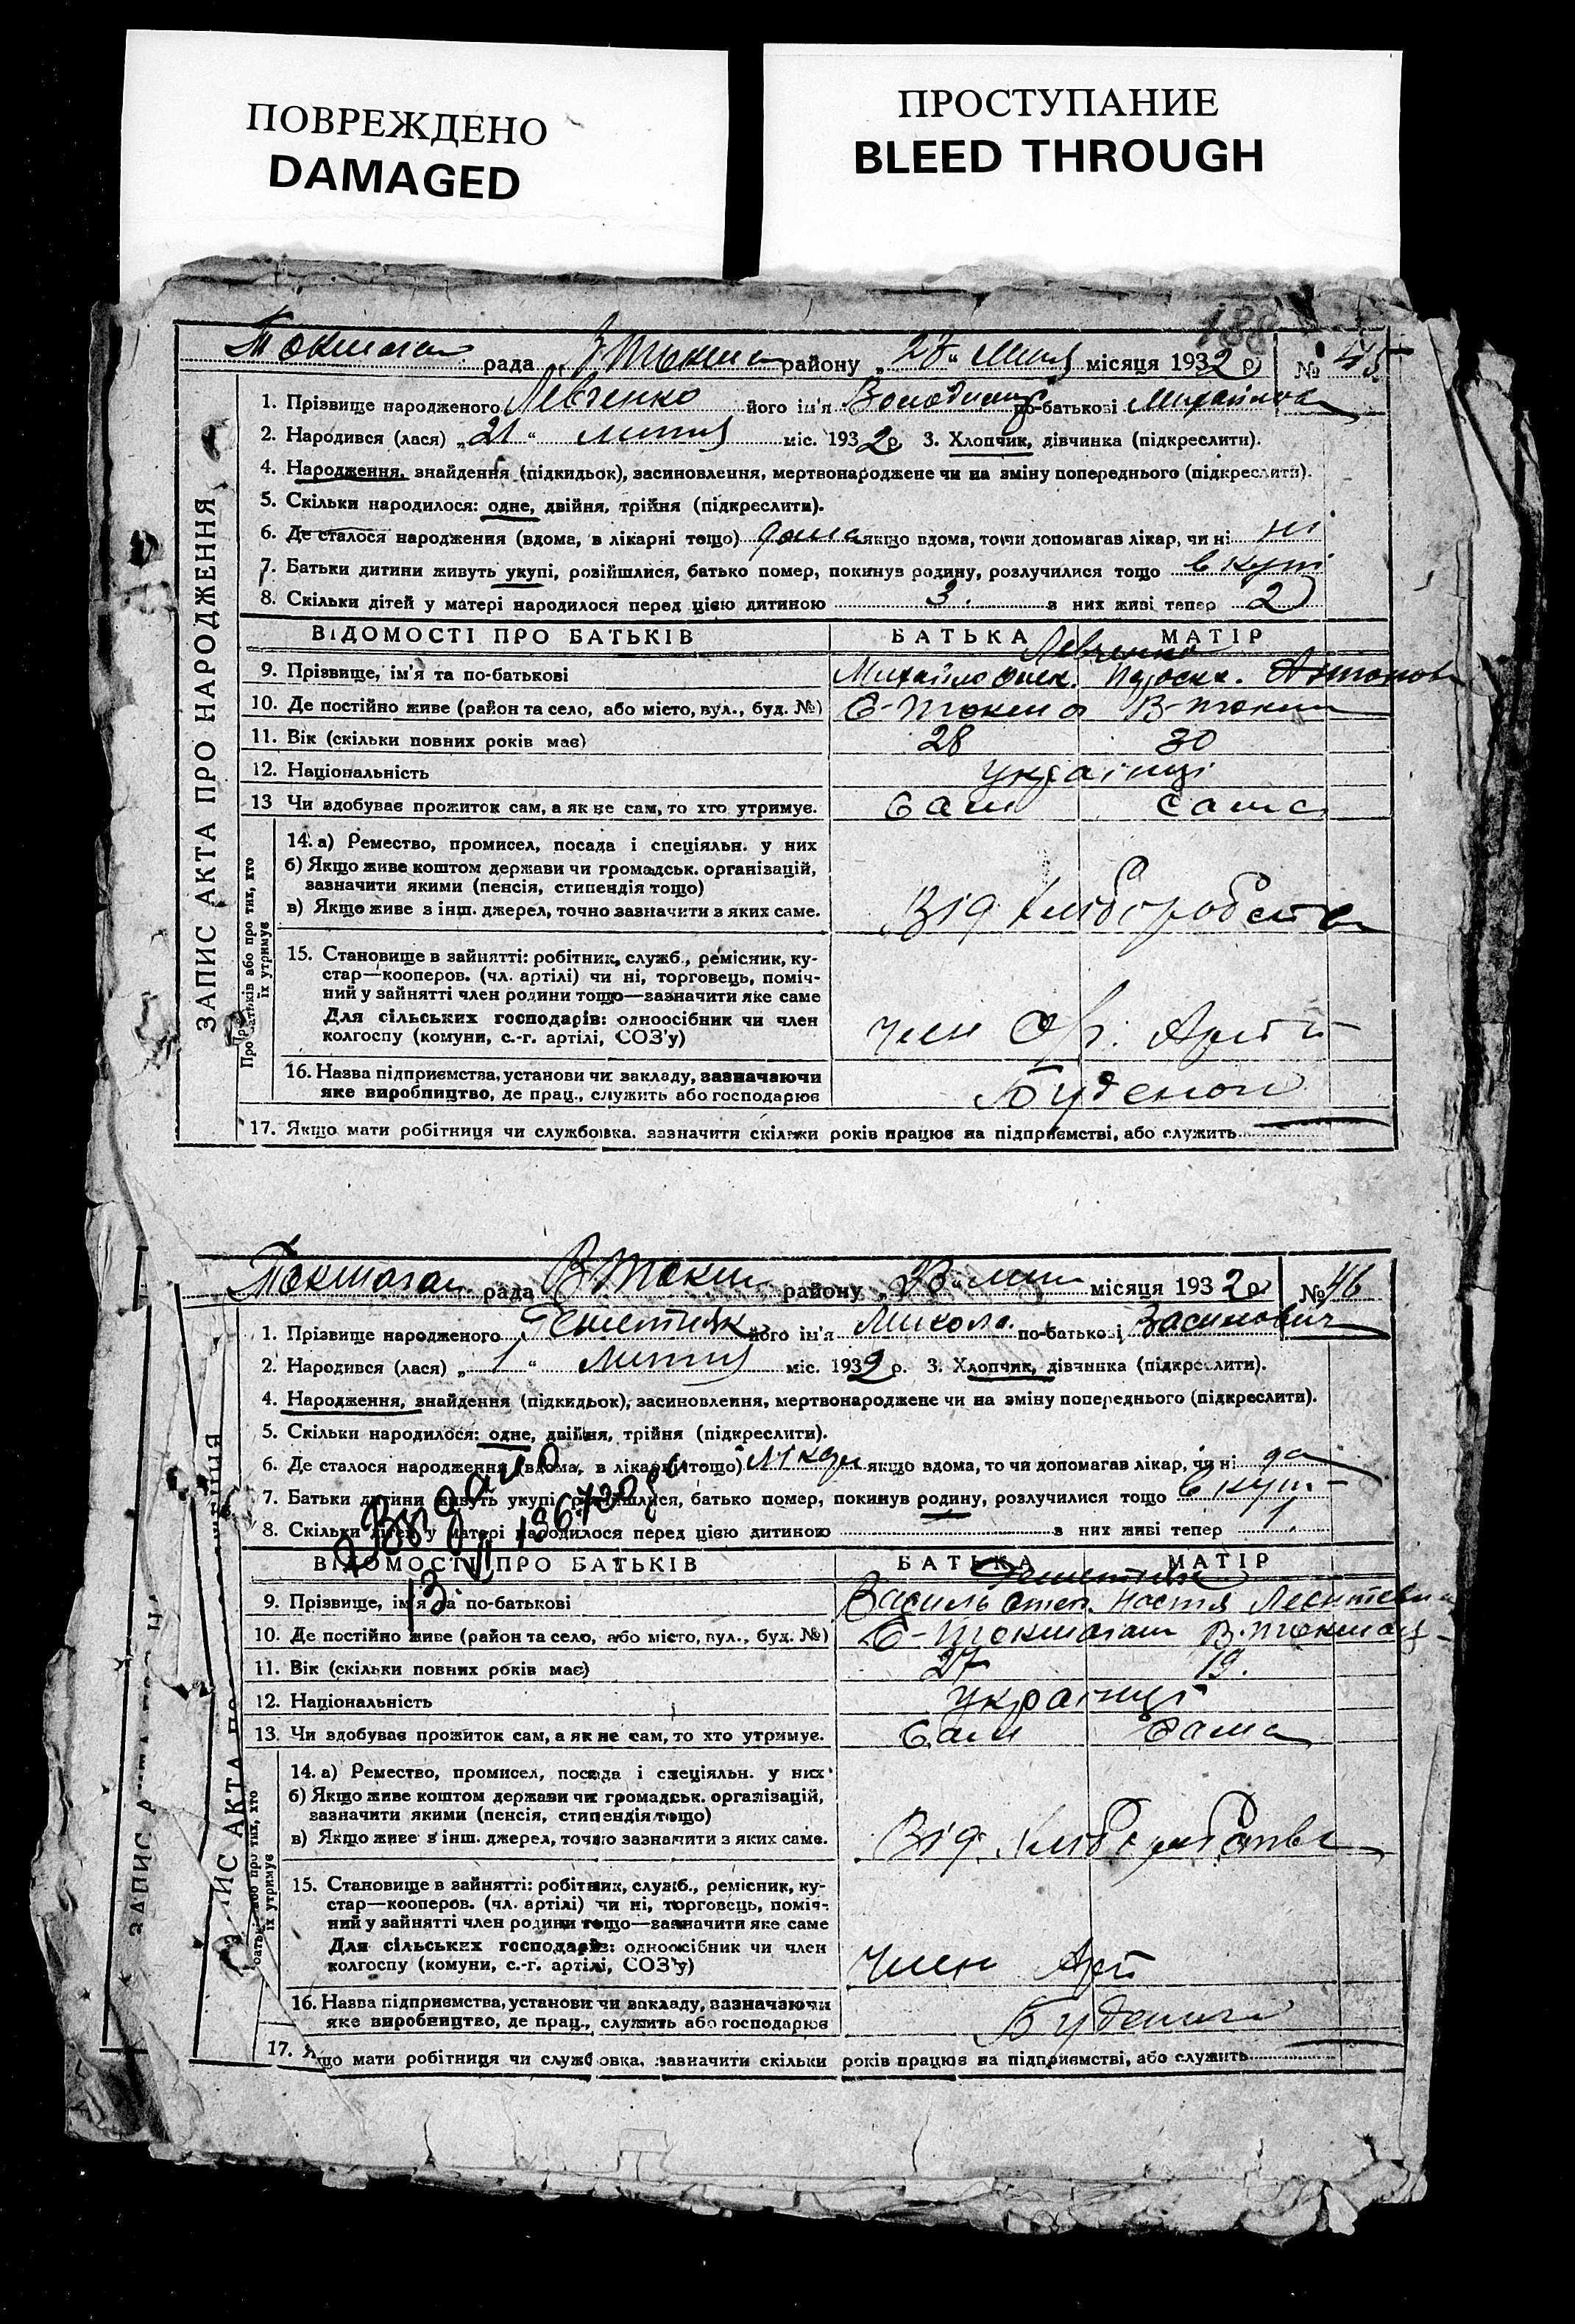 ПОВРЕЖДЕНО
DAMAGED
ПРОСТУПАНИЕ
BLEED THROUGH
188
Токмага рада В Токма району „27“ липня місяця 1932 р. № 45
1. Прізвище народженого Левченко його ім'я Володимир по-батькові Михайлов
2. Народився (лася) „21“ липня міс. 1932 р. 3. Хлопчик, дівчинка (підкреслити).
4. Народження, знайдення (підкидьок), засиновлення, мертвонароджене чи на зміну попереднього (підкреслити).
5. Скільки народилося: одне, двійня, трійня (підкреслити).
6. Де сталося народження (вдома, в лікарні тощо) дома якщо вдома, то чи допомагав лікар, чи ні ні
7. Батьки дитини живуть укупі, розійшлися, батько помер, покинув родину, розлучилися тощо вкупі
8. Скільки дітей у матері народилося перед цією дитиною 3 з них живі тепер 2
ВІДОМОСТІ ПРО БАТЬКІВ БАТЬКА МАТІР
Левченко
9. Прізвище, ім'я та по-батькові Михайло Олек. Параск. Антонов
10. Де постійно живе (район та село, або місто, вул., буд. №) В-Токма В-Токм
11. Вік (скільки повних років має) 28 30
12. Національність українці
13 Чи здобуває прожиток сам, а як не сам, то хто утримує. Сам сама
14. а) Ремество, промисел, посада і спеціяльн. у них
б) Якщо живе коштом держави чи громадськ. організацій,
зазначити якими (пенсія, стипендія тощо)
в) Якщо живе з інш. джерел, точно зазначити з яких саме. Від хліборобства
15. Становище в зайнятті: робітник, служб., ремісник, ку-
стар—кооперов. (чл. артілі) чи ні, торговець, поміч-
ний у зайнятті член родини тощо—зазначити яке саме
Для сільських господарів: одноосібник чи член
колгоспу (комуни, с.-г. артілі, СОЗ'у) член Арт
16. Назва підприємства, установи чи закладу, зазначаючи
яке виробництво, де прац., служить або господарює Буденого
17. Якщо мати робітниця чи службовка, зазначити скільки років працює на підприємстві, або служить
ЗАПИС АКТА ПРО НАРОДЖЕННЯ
Про батьків або про тих, хто
їх утримує
Токмага рада В Токм району „23“ лип місяця 1932 р. № 46
1. Прізвище народженого його ім'я Микола по-батькові Василович
2. Народився (лася) „1“ липня міс. 1932 р. 3. Хлопчик, дівчинка (підкреслити).
4. Народження, знайдення (підкидьок), засиновлення, мертвонароджене чи на зміну попереднього (підкреслити).
5. Скільки народилося: одне, двійня, трійня (підкреслити).
6. Де сталося народження (вдома, в лікарні тощо) лікар якщо вдома, то чи допомагав лікар, чи ні да
7. Батьки дитини живуть укупі, розійшлися, батько помер, покинув родину, розлучилися тощо вкуп
8. Скільки дітей у матері народилося перед цією дитиною з них живі тепер
Видано
13 VII
ВІДОМОСТІ ПРО БАТЬКІВ БАТЬКА МАТІР
9. Прізвище, ім'я та по-батькові Василь Степ. Настя
10. Де постійно живе (район та село, або місто, вул., буд. №) В-Токмагам В-Токмац
11. Вік (скільки повних років має) 27 19.
12. Національність українці
13. Чи здобуває прожиток сам, а як не сам, то хто утримує. Сам Сама
14. а) Ремество, промисел, посада і спеціяльн. у них
б) Якщо живе коштом держави чи громадськ. організацій,
зазначити якими (пенсія, стипендія тощо)
в) Якщо живе з інш. джерел, точно зазначити з яких саме. Від хліборобства
15. Становище в зайнятті: робітник, служб., ремісник, ку-
стар—кооперов. (чл. артілі) чи ні, торговець, поміч-
ний у зайнятті член родини тощо—зазначити яке саме
Для сільських господарів: одноосібник чи член
колгоспу (комуни, с.-г. артілі, СОЗ'у) член Арт
16. Назва підприємства, установи чи закладу, зазначаючи
яке виробництво, де прац., служить або господарює Буденого
17. Якщо мати робітниця чи службовка, зазначити скільки років працює на підприємстві, або служить